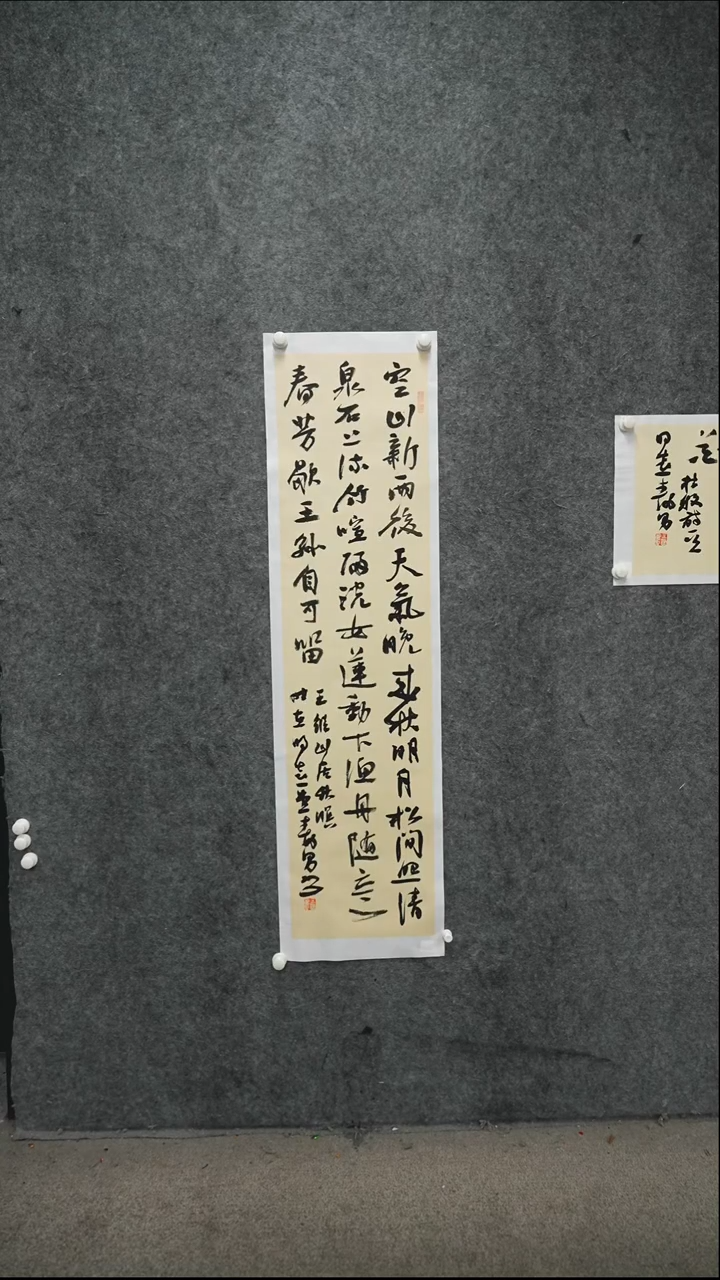 空山新雨後天氣晚来秋明月松間照清
泉石上流竹喧歸浣女蓮動下漁舟随意
春芳歇王孫自可留
王維山居秋暝
杜牧詩一首